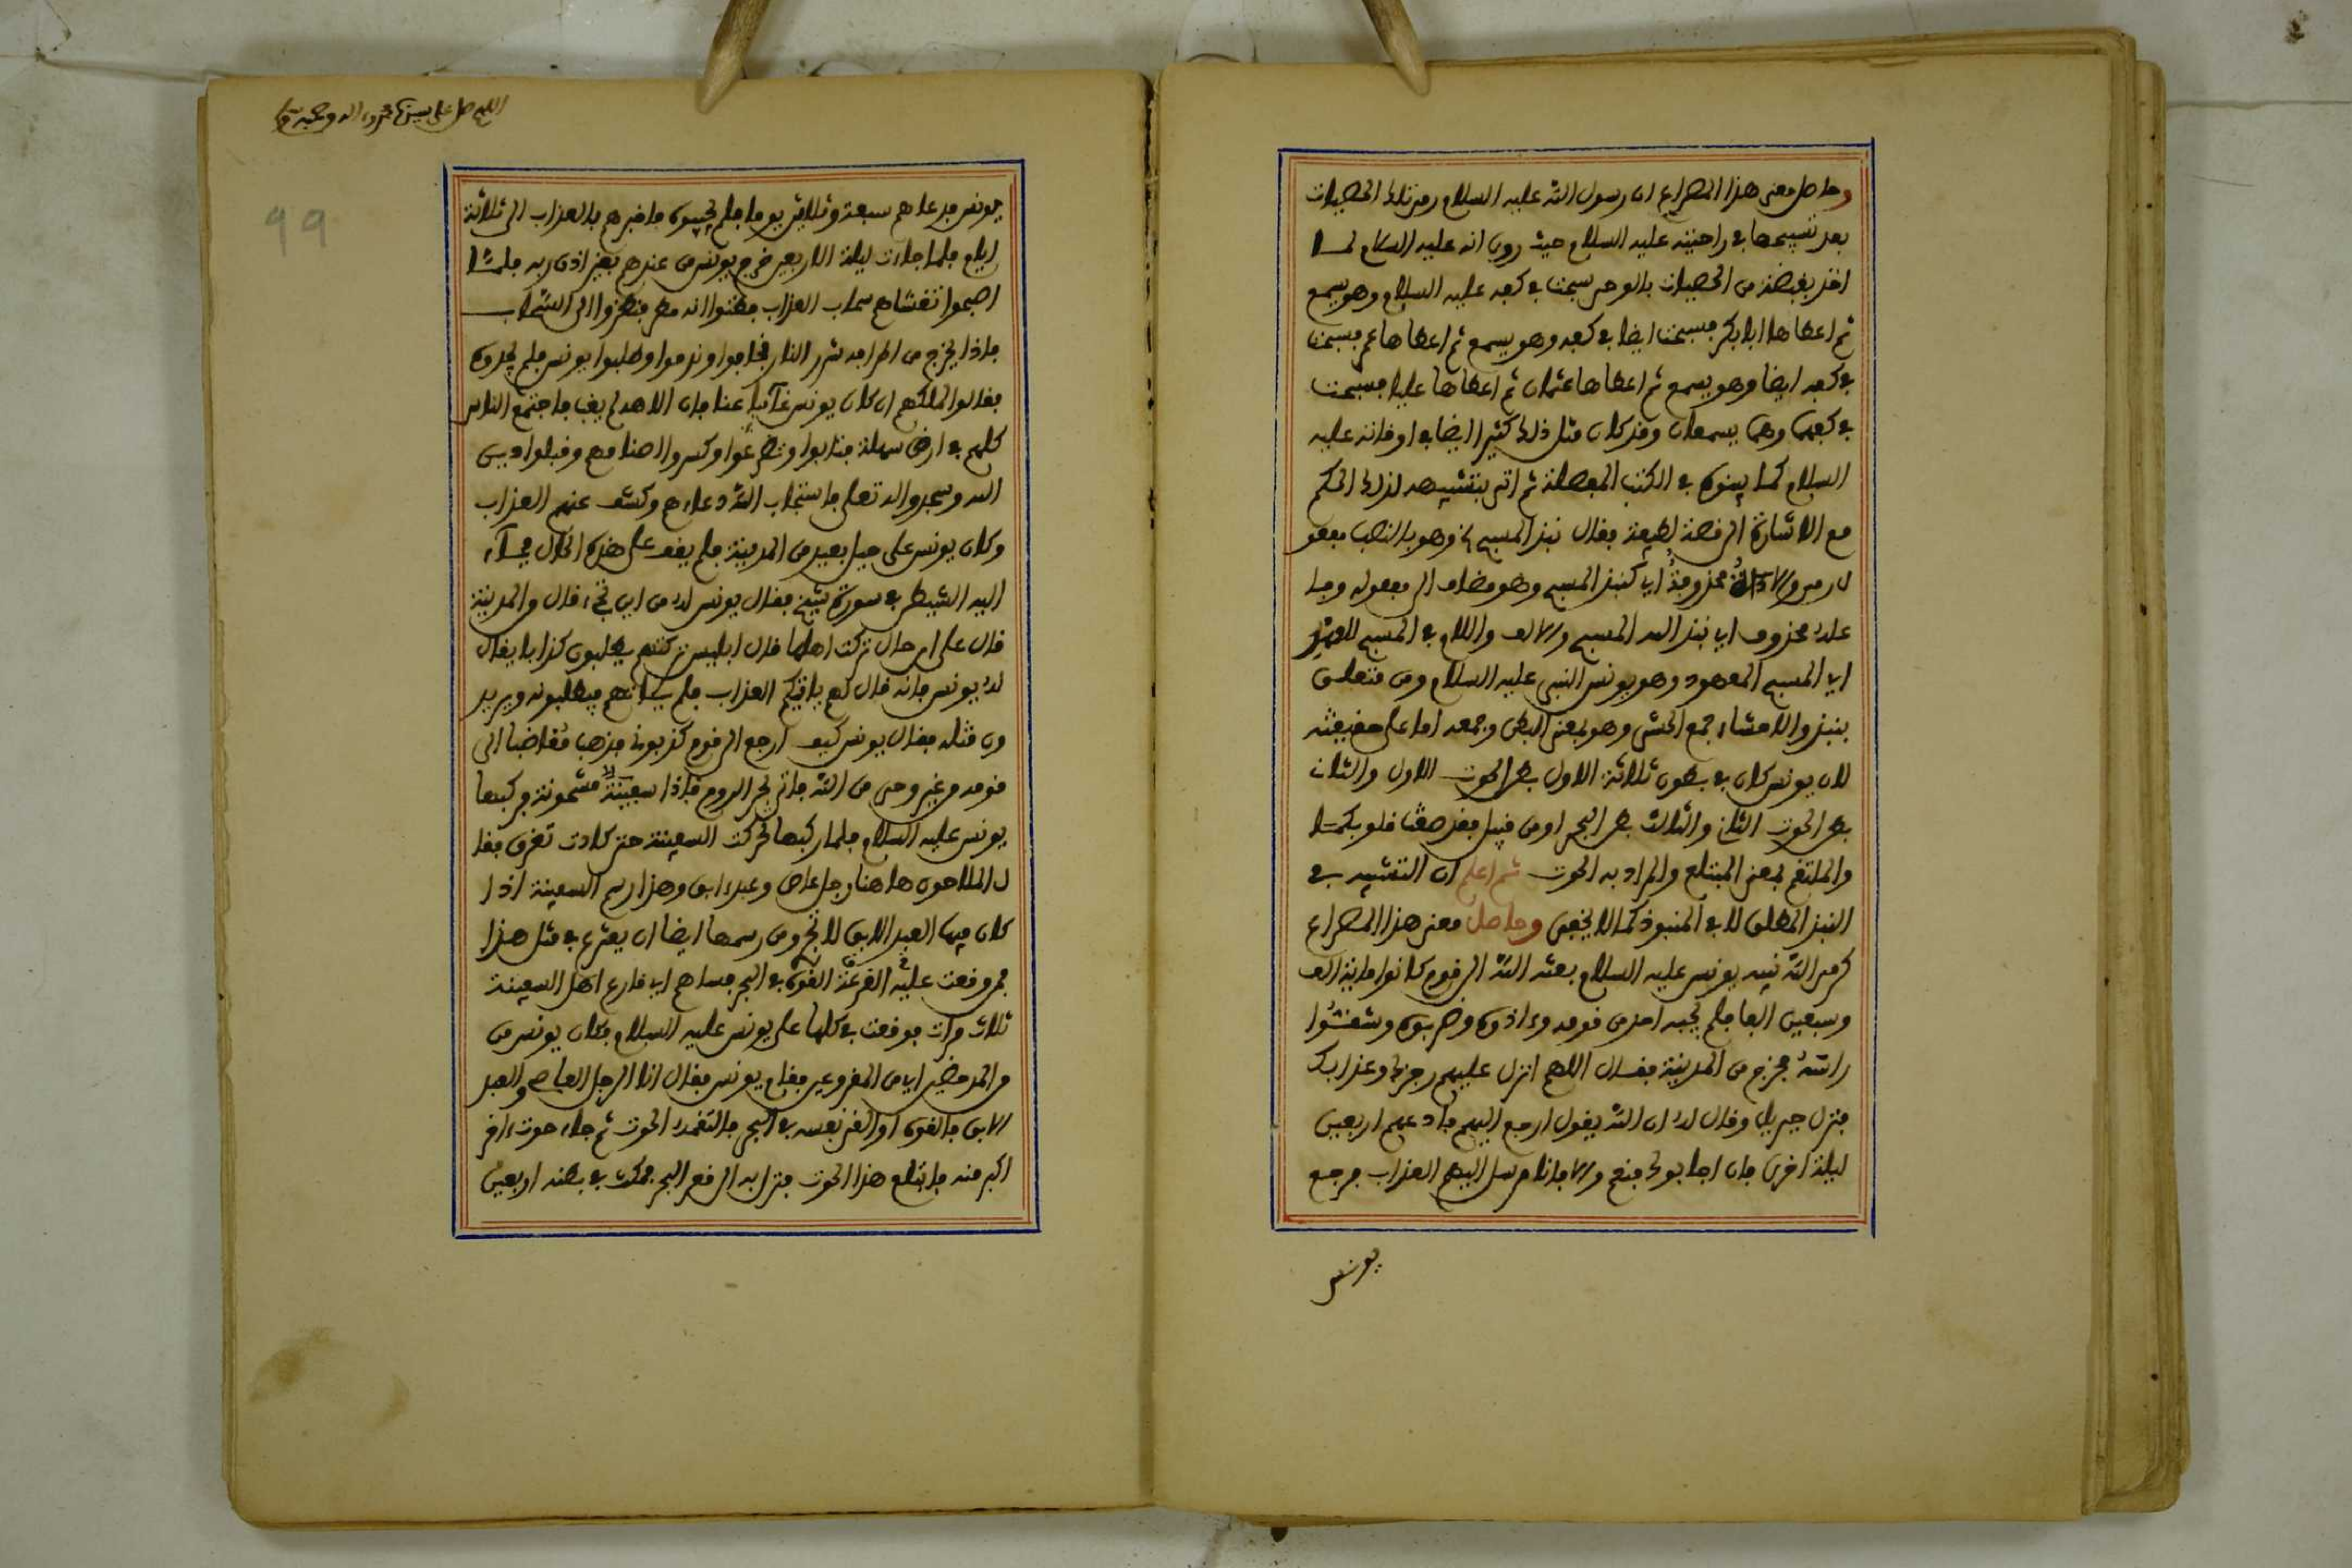 وحاصل معنى هذا المصراع ان رسول الله عليه السلام رمى تلك الحصيات
بعد تسبيحها في راحتيه عليه السلام حيث روي انه عليه السلام لما
اخذ بقبضة من الحصيات بالوحي سبحت في كفه عليه السلام وهو يسمع
ثم اعطاها ابا بكر فسبحت ايضا في كفه وهو يسمع ثم اعطاها عمر فسبحت
في كفه ايضا وهو يسمع ثم اعطاها عثمان ثم اعطاها عليا فسبحت
في كفهما وهما يسمعان وقد كان مثل ذلك كثيرا ايضا في اوقاته عليه
السلام كما بينوه في الكتب المفصلة ثم اتى بتشبيهه لذلك الحكم
مع الاشارة الى قصة لطيفة فقال نبذ المسبح الخ وهو بالنصب مفعو
ل رمى والاداة محذوفة اي كنبذ المسبح وهو مضاف الى مفعوله وفا
عله محذوف اي نبذ الله المسبح والالف واللام في المسبح للعهد
اي المسبح المعهود وهو يونس النبي عليه السلام ومن متعلق
بنبذ والاحشاء جمع الحشى وهو بمعنى البطن وجمعه اما على حقيقته
لان يونس كان في بطون ثلاثة الاول بطن الحوت الاول والثان
بطن الحوت الثاني والثالث بطن البحر او من قبيل فقد صغت قلوبكما
والملتقم بمعنى المبتلع والمراد به الحوت ثم اعلم ان التشبيه في
النبذ المطلق لا في المنبوذ كما لا يخفى وحاصل معنى هذا المصراع
كرمى الله نبيه يونس عليه السلام بعثه الله الى قوم كانوا ماية الف
وسبعين الفا فلم يجبه احد من قومه وءاذوه وضربوه وشتشوا
راسه فخرج من المدينة فقال اللهم انزل عليهم رجزك وعذابك
فنزل جبريل وقال له ان الله يقول ارجع اليهم فادعهم اربعين
ليلة اخرى فان اجابوك فنعم والا فانا مرسل اليهم العذاب فرجع
يونس
اللهم صل على سيدنا محمد وءاله وصحبه
99
يونس فدعاهم سبعة وثلاثين يوما فلم يجيبوه فاخبرهم بالعذاب الى ثلاثة
ايام فلما جاءت ليلة الاربعين خرج يونس من عندهم بغير اذن ربه فلما
اصبحوا تغشاهم سحاب العذاب فظنوا انه مطر فنظروا الى السحاب
فاذا يخرج من اطرافه شرر النار فخافوا وندموا وطلبوا يونس فلم يجدوه
فقالوا لملكهم ان كان يونس غائبا عنا فان الاهه لم يغب فاجتمع الناس
كلهم في ارض سهلة فتابوا وتضرعوا وكسروا اصنامهم وقبلوا دين
الله وسجدوا له تعالى فاستجاب الله دعاءهم وكشف عنهم العذاب
وكان يونس على جبل بعيد من المدينة فلم يقف على هذه الحال فجاء
اليه الشيطن في سورة شيخ فقال يونس له من اين تجيء قال والمدينة
قال على اي حال تركت اهلها قال ابليس تركتهم يطلبون كذابا يقال
له يونس فانه قال لهم ياتيكم العذاب فلم ياتهم فيطلبونه ويريد
ون قتله فقال يونس كيف ارجع الى قوم كذبوني فذهب مغاضبا الى
قومه وغير وحي من الله فاتى بحر الروم فاذا سفينة مشحونة فركبها
يونس عليه السلام فلما ركبها تحركت السفينة حتى كادت تغرق فقا
ل الملاحون هاهنا رجل عاص وعبد ءابق وهذا رسم السفينة اذا
كان فيها العبد الابق لا تجر ومن رسمها ايضا ان يقترع في مثل هذا
فمن وقعت عليه القرعة القوه في البحر فساهم اي قارع اهل السفينة
ثلاث مرات فوقعت في كلها على يونس عليه السلام فكان يونس من
من المدحضين اي من المقروعين فقام يونس فقال انا الرجل العاصي والعبد
الابق فالقوه او القى نفسه في البحر فالتقمه الحوت ثم جاء حوت ءاخر
اكبر منه فابتلع هذا الحوت فنزل به الى قعر البحر فمكث في بطنه اربعين